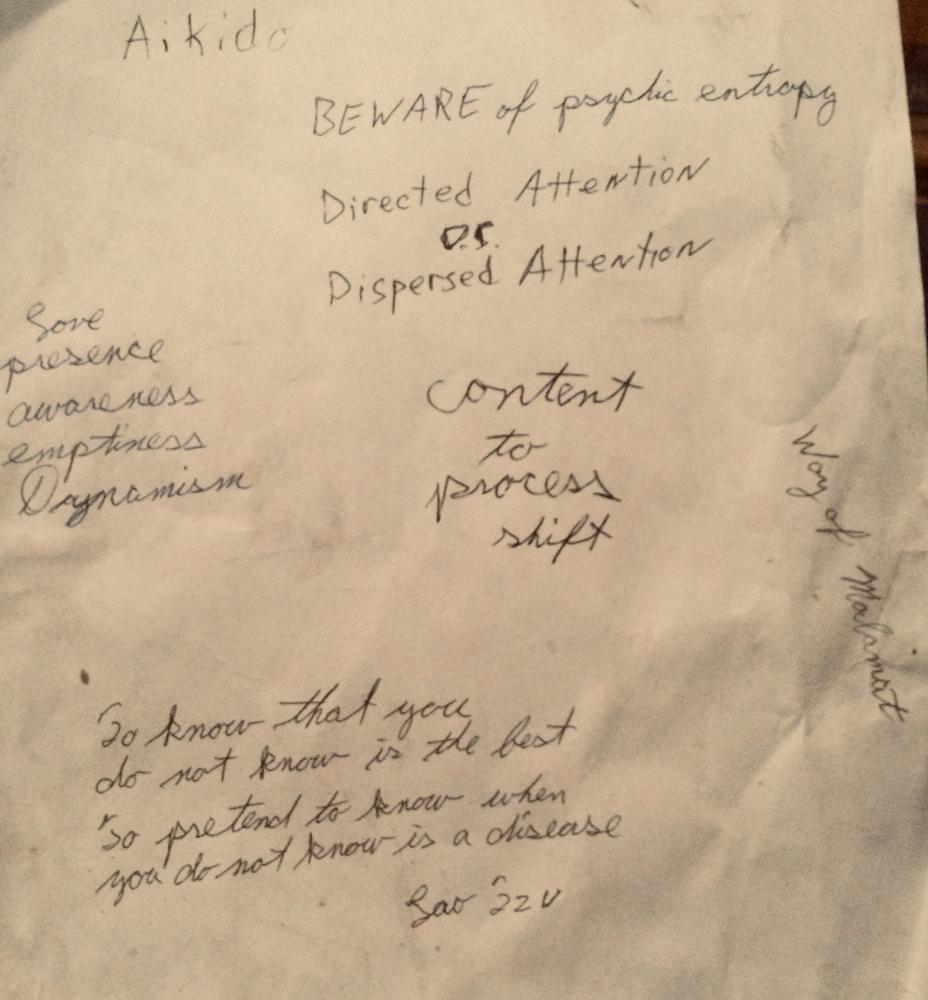 Aikido
BEWARE of psychic entropy
Directed Attention
or
Dispersed Attention
Love
presence
awareness
emptiness
Dynamism
content
to
process
shift
Way of Malamat
To know that you
do not know is the best
To pretend to know when
you do not know is a disease
Lao Tzu